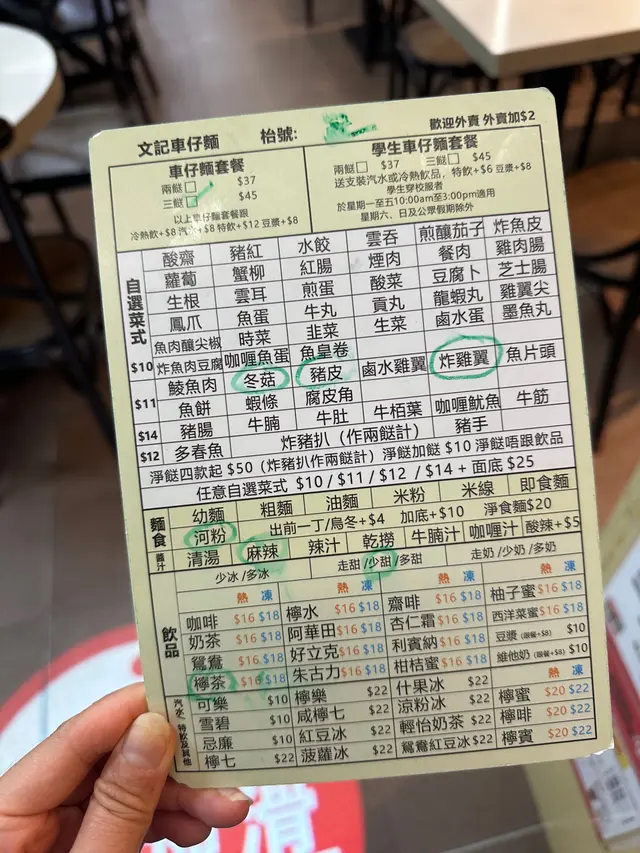 文記車仔麵 枱號: 歡迎外賣 外賣加$2
車仔麵套餐
兩餸□ $37
三餸□ $45
以上車仔麵套餐跟
冷熱飲+$8 汽水+$8 特飲+$12 豆漿+$8
學生車仔麵套餐
兩餸□ $37 三餸□ $45
送支裝汽水或冷熱飲品，特飲+$6 豆漿+$8
學生穿校服者
於星期一至五10:00am至3:00pm適用
星期六、日及公眾假期除外
自選菜式
酸齋 豬紅 水餃 雲吞 煎釀茄子 炸魚皮
蘿蔔 蟹柳 紅腸 煙肉 餐肉 雞肉腸
生根 雲耳 煎蛋 酸菜 豆腐卜 芝士腸
鳳爪 魚蛋 牛丸 貢丸 龍蝦丸 雞翼尖
魚肉釀尖椒 時菜 韭菜 生菜 鹵水蛋 墨魚丸
$10 炸魚肉豆腐 咖喱魚蛋 魚皇卷 鹵水雞翼 炸雞翼 魚片頭
$11 鯪魚肉 冬菇 豬皮
魚餅 蝦條 腐皮角 牛栢葉 咖喱魷魚 牛筋
$14 豬腸 牛腩 牛肚 豬手
$12 多春魚 炸豬扒（作兩餸計）
淨餸四款起 $50（炸豬扒作兩餸計）淨餸加餸 $10 淨餸唔跟飲品
任意自選菜式 $10 / $11 / $12 / $14 + 面底 $25
麵食
幼麵 粗麵 油麵 米粉 米線 即食麵
河粉 出前一丁/烏冬+$4 加底+$10 淨食麵$20
醬汁 清湯 麻辣 辣汁 乾撈 牛腩汁 咖喱汁 酸辣+$5
飲品
少冰 /多冰 走甜 /少甜 /多甜 走奶 /少奶 /多奶
熱 凍 熱 凍 熱 凍 熱 凍
咖啡 $16 $18 檸水 $16 $18 齋啡 $16 $18 柚子蜜 $16 $18
奶茶 $16 $18 阿華田 $16 $18 杏仁霜 $16 $18 西洋菜蜜 $16 $18
鴛鴦 $16 $18 好立克 $16 $18 利賓納 $16 $18 豆漿 (跟餐+$8) $10
檸茶 $16 $18 朱古力 $16 $18 柑桔蜜 $16 $18 維他奶 (跟餐+$8) $10
汽水、特飲及其他
熱 凍
可樂 $10 檸樂 $22 什果冰 $22 檸蜜 $20 $22
雪碧 $10 咸檸七 $22 涼粉冰 $22 檸啡 $20 $22
忌廉 $10 紅豆冰 $22 輕怡奶茶 $22 檸賓 $20 $22
檸七 $22 菠蘿冰 $22 鴛鴦紅豆冰 $22
滑